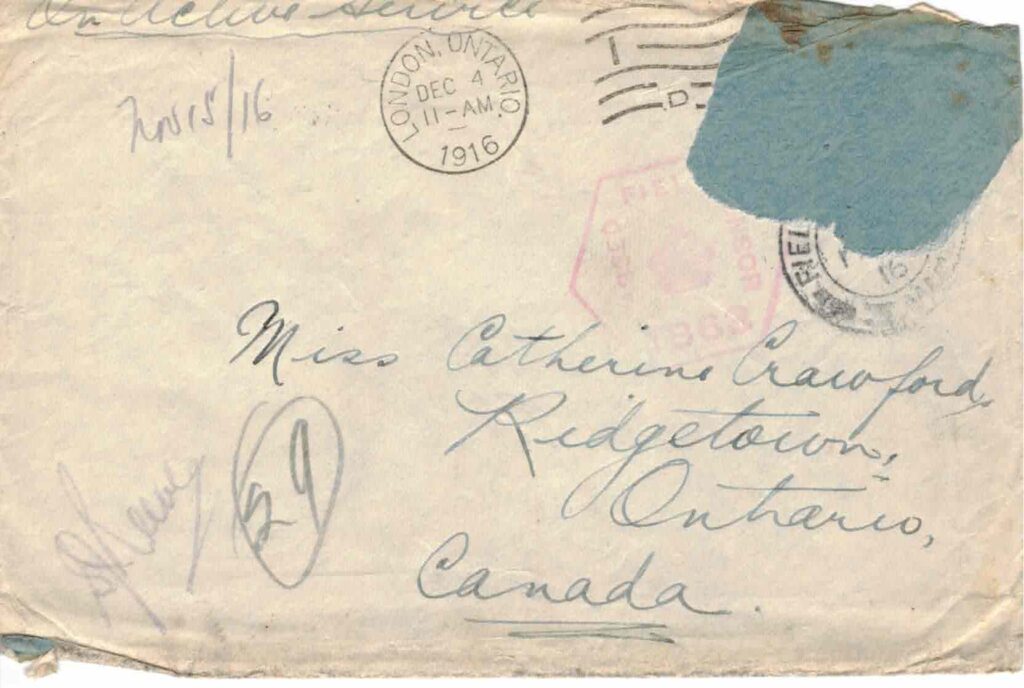 On Active Service
LONDON, ONTARIO.
DEC 4
11-AM
1916
I
D
Nov 15/16
FIEL
16
1868
Miss Catherine Crawford,
Ridgetown,
Ontario,
Canada.
29